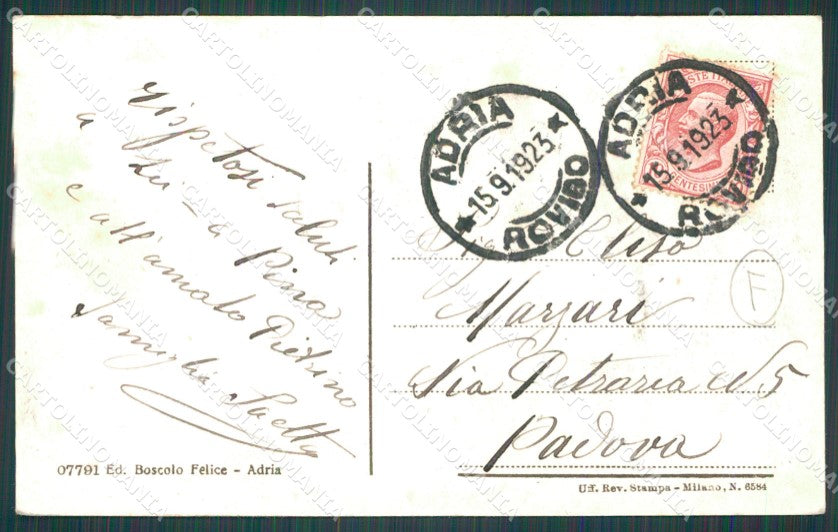 Rispetosi saluti
a Lei - a Pina
e all'amato Pietrino
Famiglia Saetty
07791 Ed. Boscolo Felice - Adria
ADRIA
15.9.1923
ROVIGO
ADRIA
15.9.1923
ROVIGO
POSTE ITALIANE
CENTESIMI
Marzari
Via Petraria N 5
Padova
F
Uff. Rev. Stampa - Milano, N. 6584
CARTOLINOMANIA